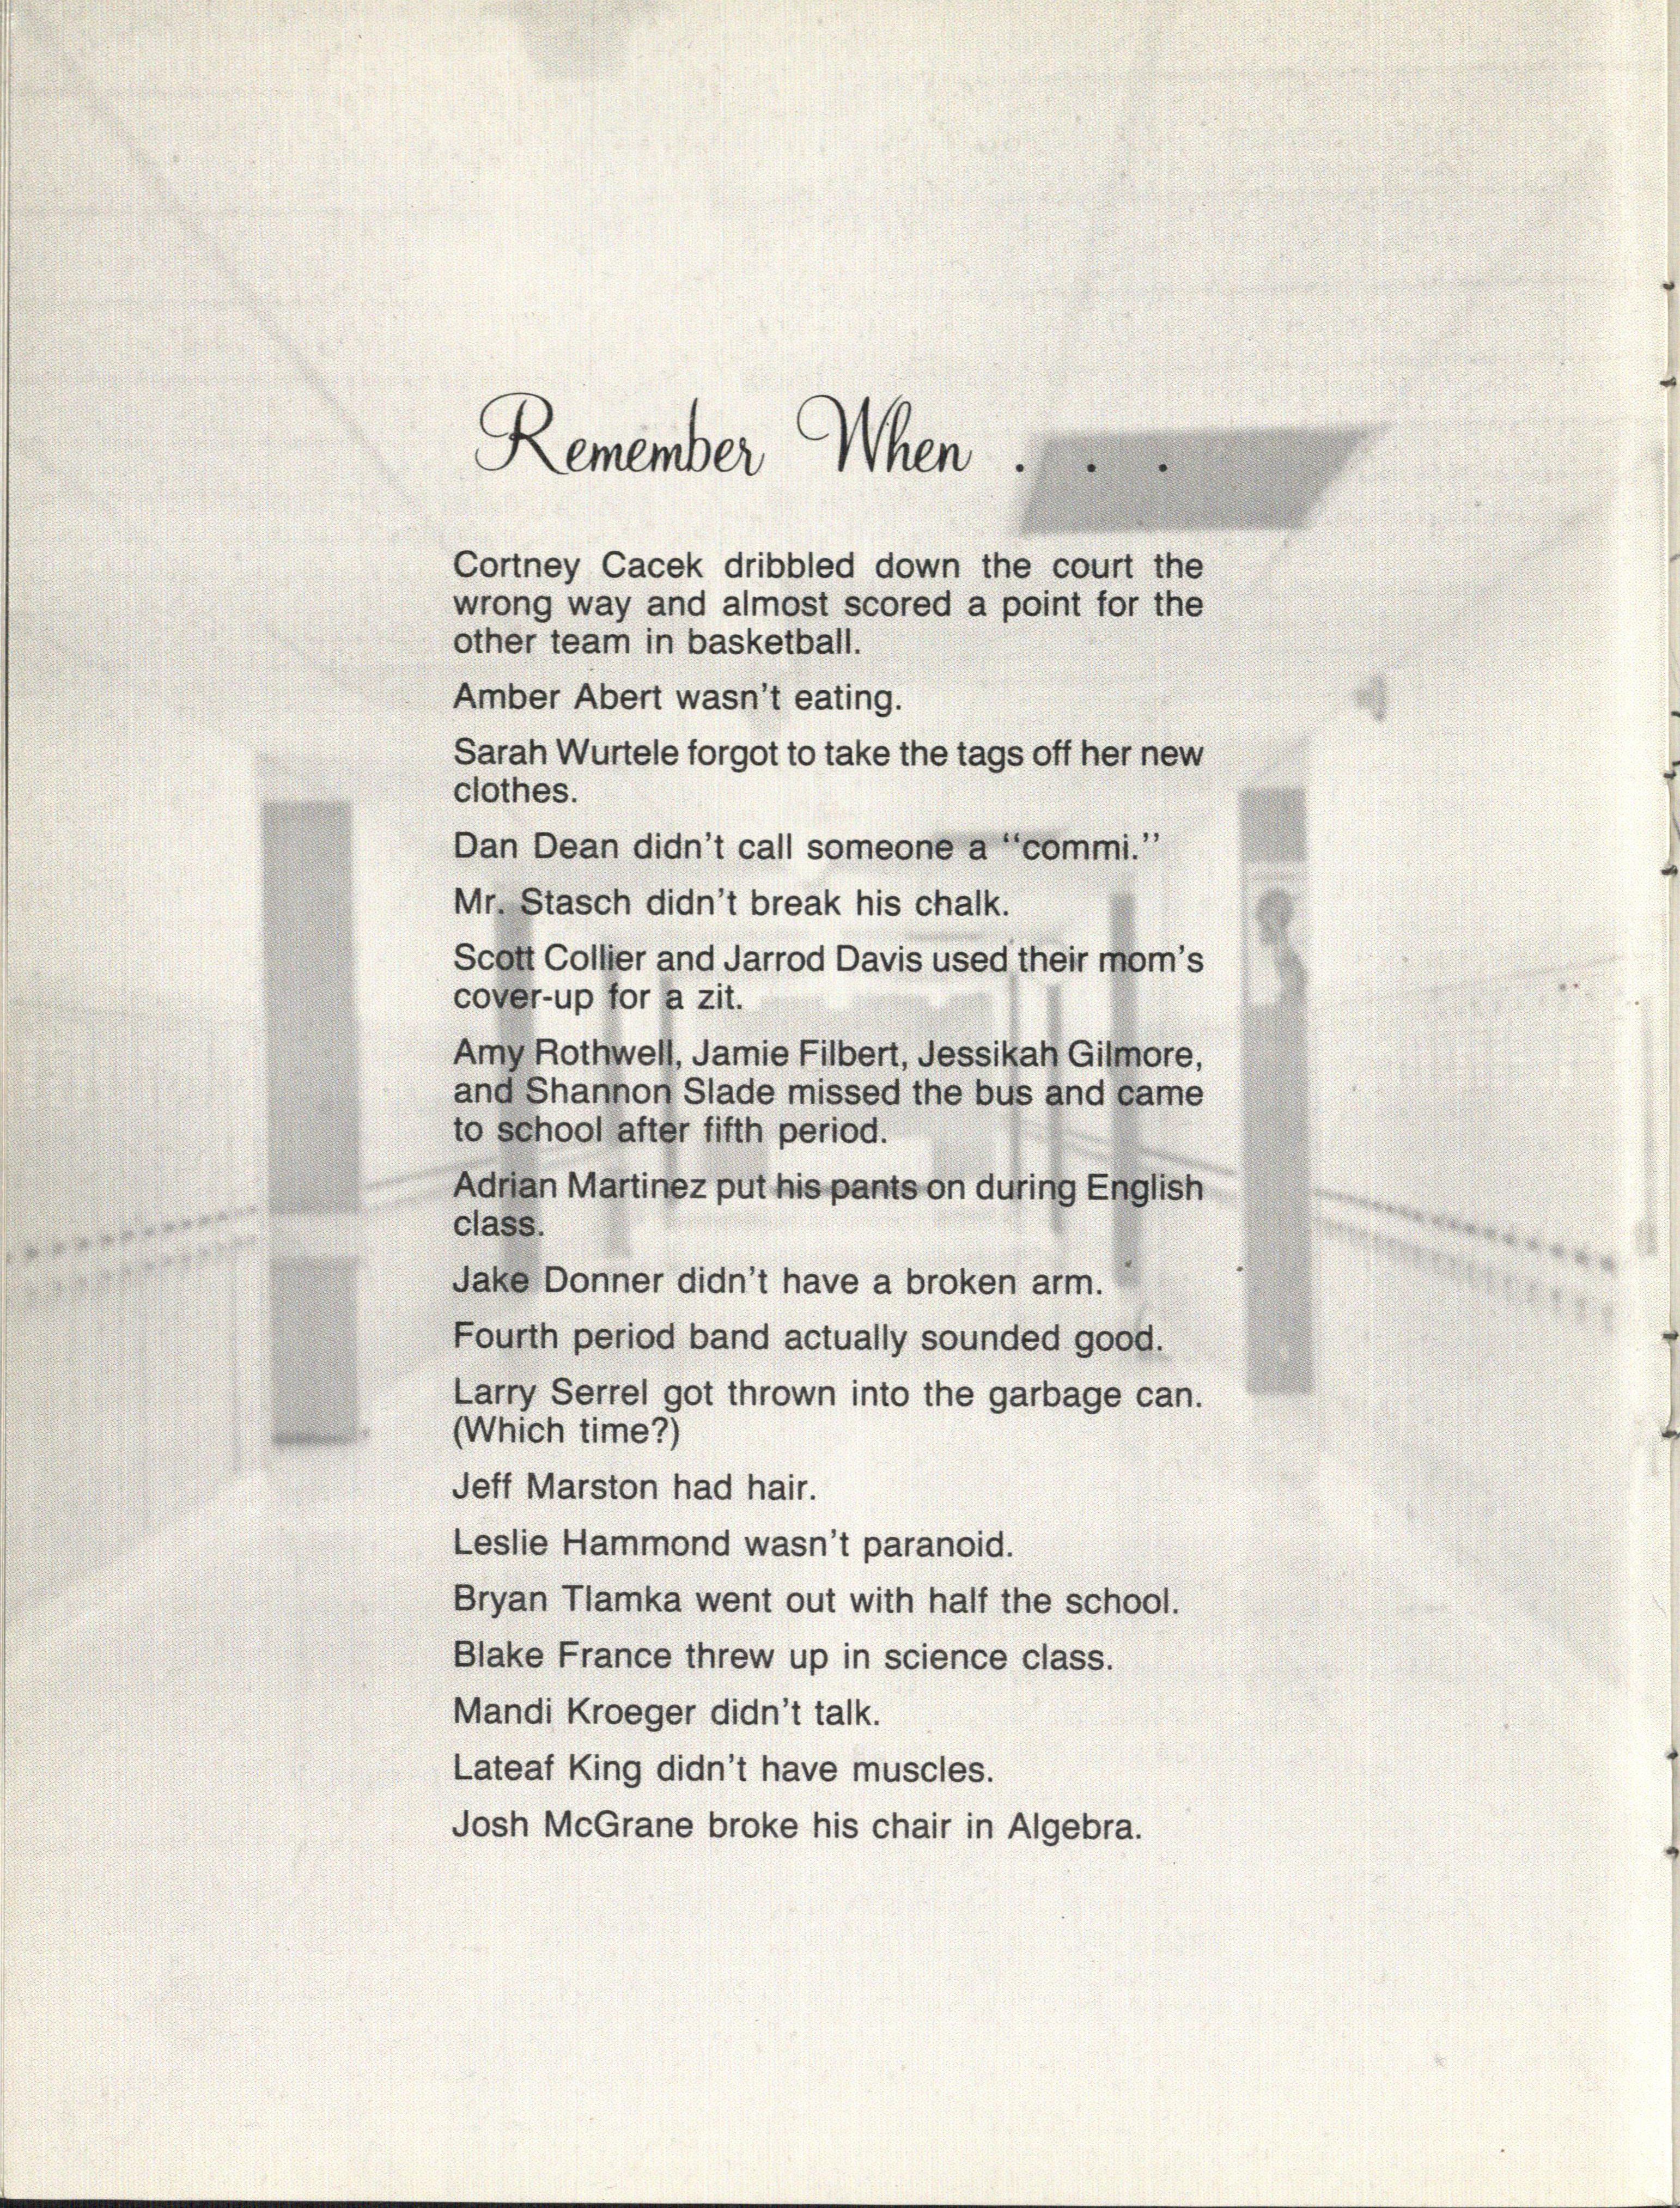 Remember When . . .
Cortney Cacek dribbled down the court the
wrong way and almost scored a point for the
other team in basketball.
Amber Abert wasn't eating.
Sarah Wurtele forgot to take the tags off her new
clothes.
Dan Dean didn't call someone a "commi."
Mr. Stasch didn't break his chalk.
Scott Collier and Jarrod Davis used their mom's
cover-up for a zit.
Amy Rothwell, Jamie Filbert, Jessikah Gilmore,
and Shannon Slade missed the bus and came
to school after fifth period.
Adrian Martinez put his pants on during English
class.
Jake Donner didn't have a broken arm.
Fourth period band actually sounded good.
Larry Serrel got thrown into the garbage can.
(Which time?)
Jeff Marston had hair.
Leslie Hammond wasn't paranoid.
Bryan Tlamka went out with half the school.
Blake France threw up in science class.
Mandi Kroeger didn't talk.
Lateaf King didn't have muscles.
Josh McGrane broke his chair in Algebra.